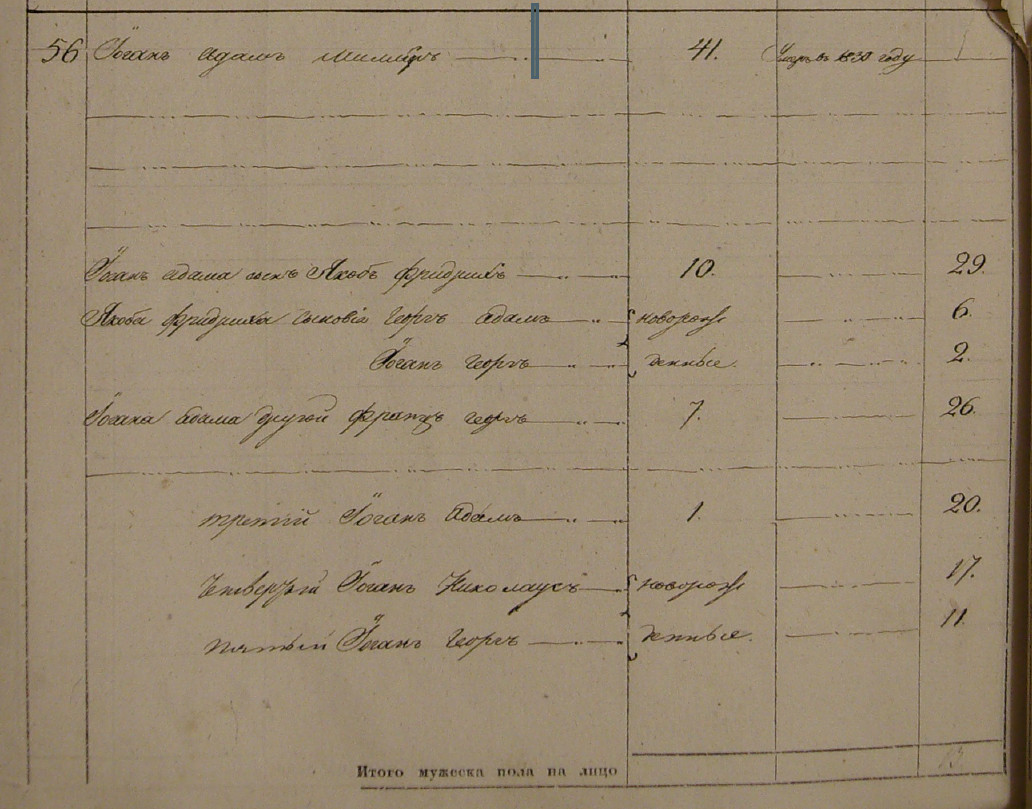 56 Іоганъ Адамъ Миллеръ 41. Умеръ въ 1830 году
Іоганъ Адама сынъ Якобъ Фридрихъ 10. 29.
Якоба Фридриха сыновія Георгъ Адамъ новорож 6.
Іоганъ Георгъ денные. 2.
Іогана Адама другой Францъ Георгъ 7. 26.
третій Іоганъ Адамъ 1. 20.
четвертый Іоганъ Николаусъ новорож 17.
пятый Іоганъ Георгъ денные. 11.
Итого мужеска пола на лицо